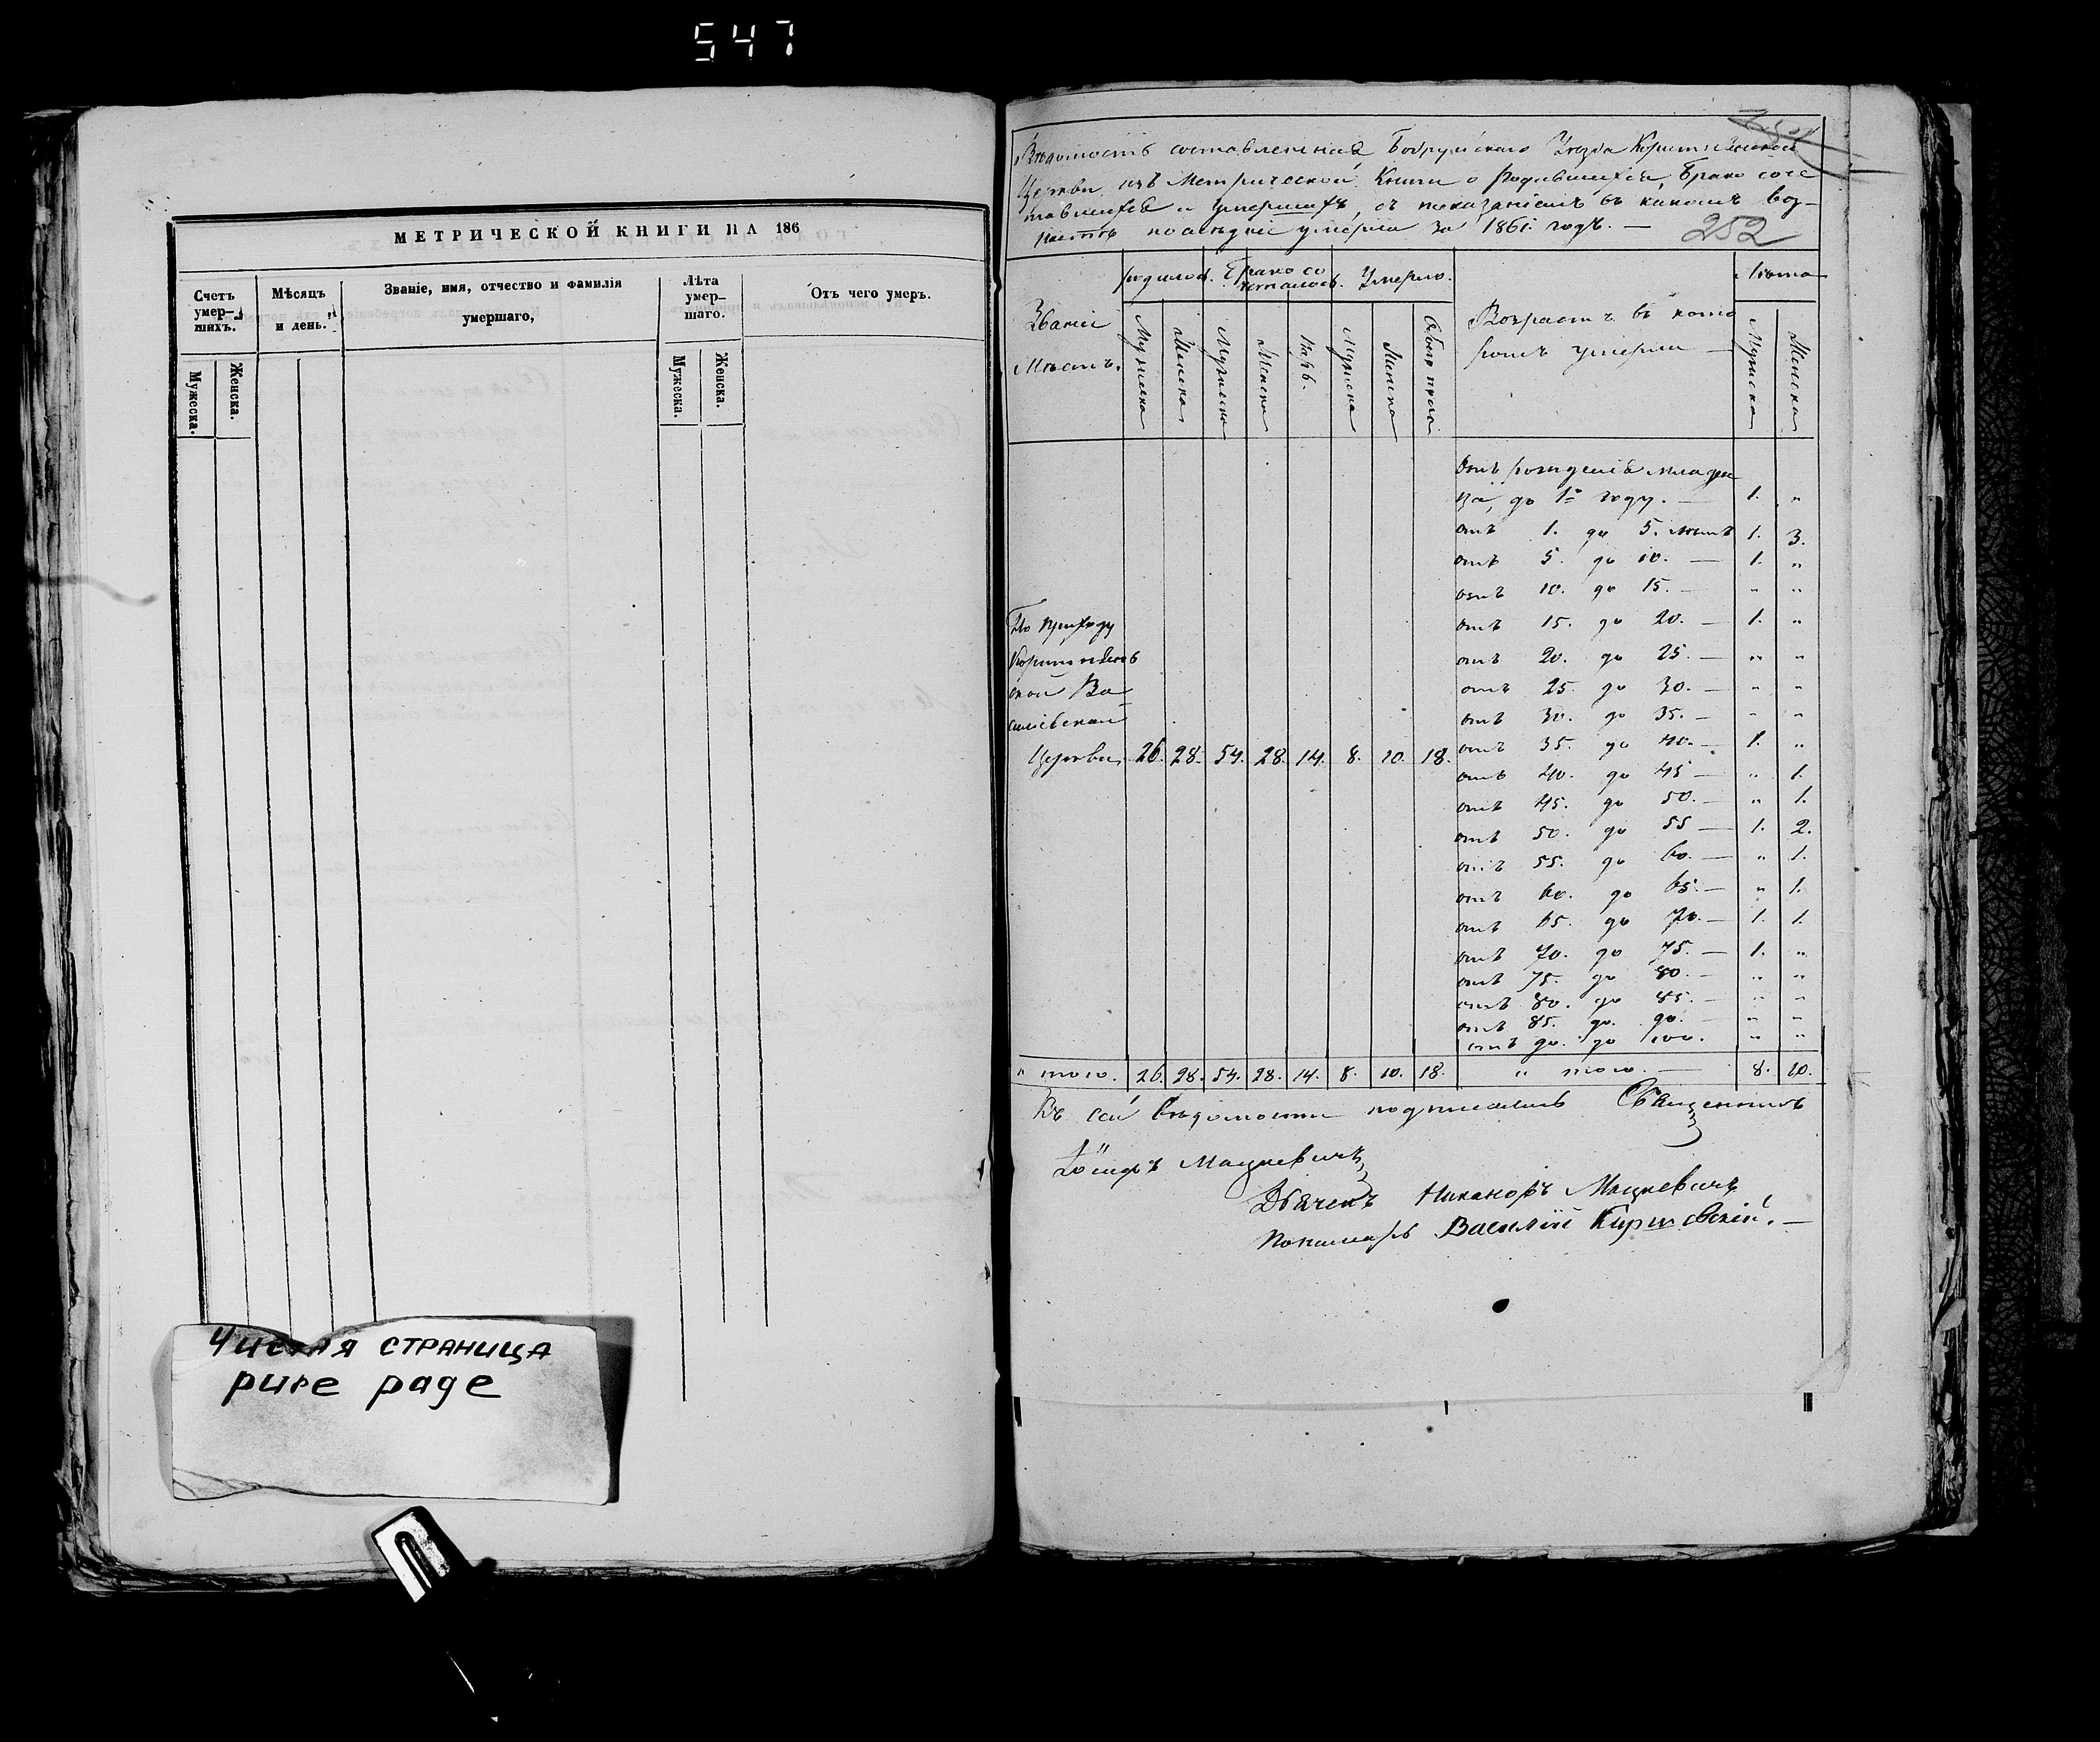 547
МЕТРИЧЕСКОЙ КНИГИ НА 186
Счетъ умер-шихъ.
Мѣсяцъ и день.
Званіе, имя, отчество и фамилія умершаго,
Лѣта умер-шаго.
Отъ чего умеръ.
Мужеска.
Женска.
Мужеска.
Женска.
Чистая страница
pure page
Вѣдомость составленная Бобруйскаго Уѣзда
Церкви изъ Метрической Книги о Родившихся, Брако соче
тавшихся и Умершихъ, съ показаніемъ въ какомъ воз-
растѣ послѣдніе умерли за 1861. годъ. —
252
Званіе Мѣстъ.
родилось.
Брако со четалось.
Умерло.
Возрастъ въ кото ромъ умерли —
Мужеска
Женска
Мужеска
Женска
Паръ.
Мужеска
Женска
Обоего пола
Мужеска
Женска
Отъ рожденія младен
ца, до 1го году. — 1. "
отъ 1. до 5. лѣтъ 1. 3.
отъ 5. до 10. — 1. "
отъ 10. до 15. — " "
отъ 15. до 20. — 1. "
отъ 20. до 25. — " "
отъ 25. до 30. — " "
отъ 30. до 35. — " "
отъ 35. до 40. — 1. "
отъ 40. до 45 — " 1.
отъ 45. до 50. — " 1.
отъ 50. до 55 — 1. 2.
отъ 55. до 60. — " 1.
отъ 60. до 65. — " 1.
отъ 65. до 70. — 1. 1.
отъ 70. до 75. — 1. "
отъ 75. до 80. — " "
отъ 80. до 85. — " "
отъ 85. до 90. — " "
отъ 90. до 100. " "
По приходу
ской Ва
сильевской
Церкви 26. 28. 54. 28. 14. 8. 10. 18.
" того. 26. 28. 54. 28. 14. 8. 10. 18. " того. — 8. 10.
Къ сей вѣдомости подписались Священникъ
Мацкевичъ
Дьячекъ Никаноръ Мацкевичъ
Пономарь Василій